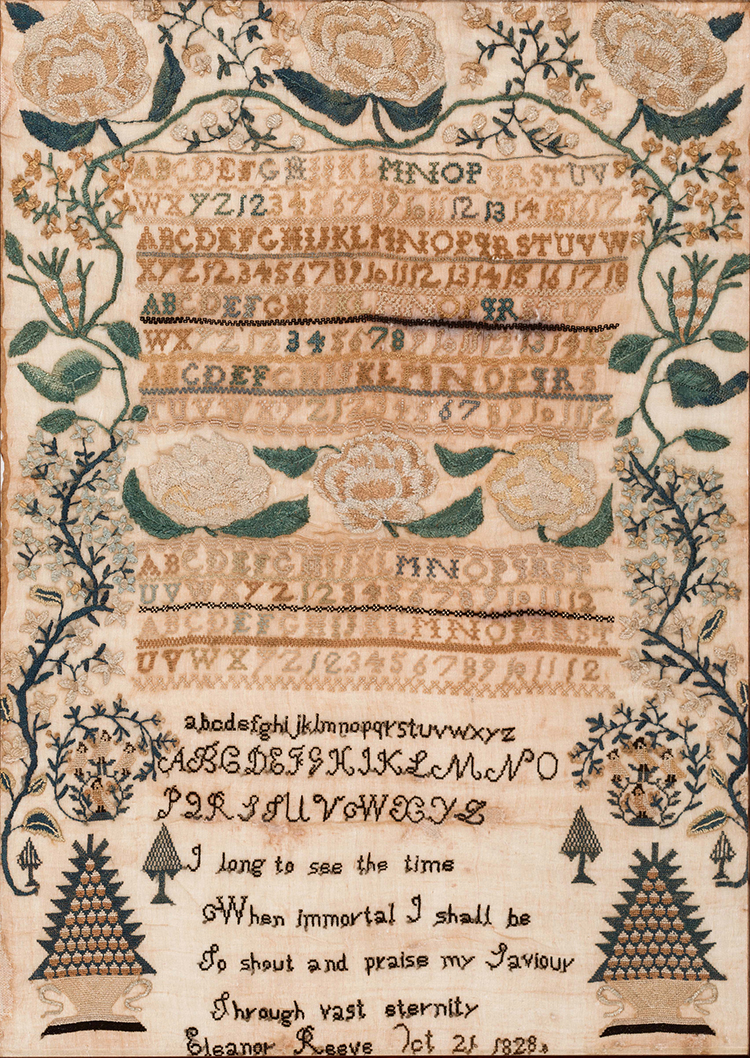 ABCDEFGHIJKL MNOP QRSTUV
WXYZ1234 5678910 11 12 13 14 15 16 17
ABCDEFGHIJKLMNOPQRSTUVW
XYZ123456789 10 11 12 13 14 15 16 17 18
ABCDEFGH OPQR
WXYZ12 3456 78 12 13 14
ABCDEFGHIJKLMNOPQRS
67 89 10 11 12
ABCDEFG MNOPQRST
UV YZ 12
ABCDEFG MNOPQRST
UVWXYZ123456789 10 11 12
abcdefghijklmnopqrstuvwxyz
ABCDEFGHIKLMNO
PQRSTUVWXYZ
I long to see the time
When immortal I shall be
To shout and praise my Saviour
Through vast eternity
Eleanor Reeve Oct 21 1828